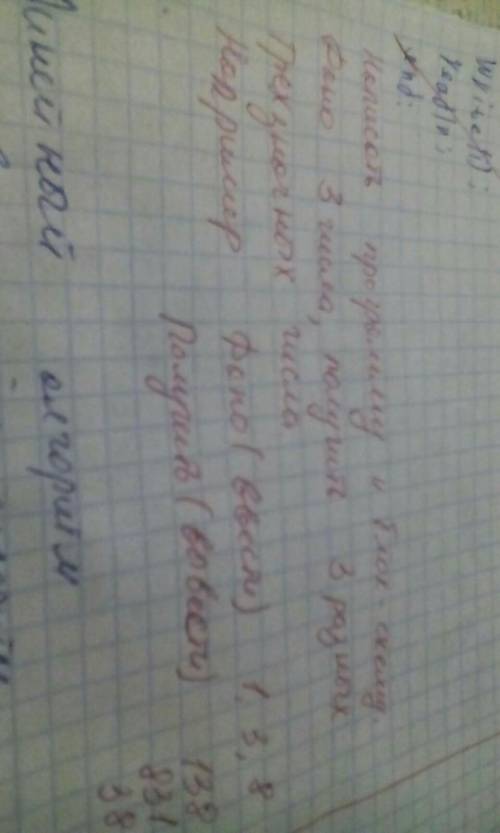 Write();
readln;
end.
Написать программу и блок-схему.
Дано 3 числа, получить 3 разных
трехзначных числа
Например Дано (ввести) 1, 3, 8
Получить (вывести) 138
831
38
Линейный алгоритм